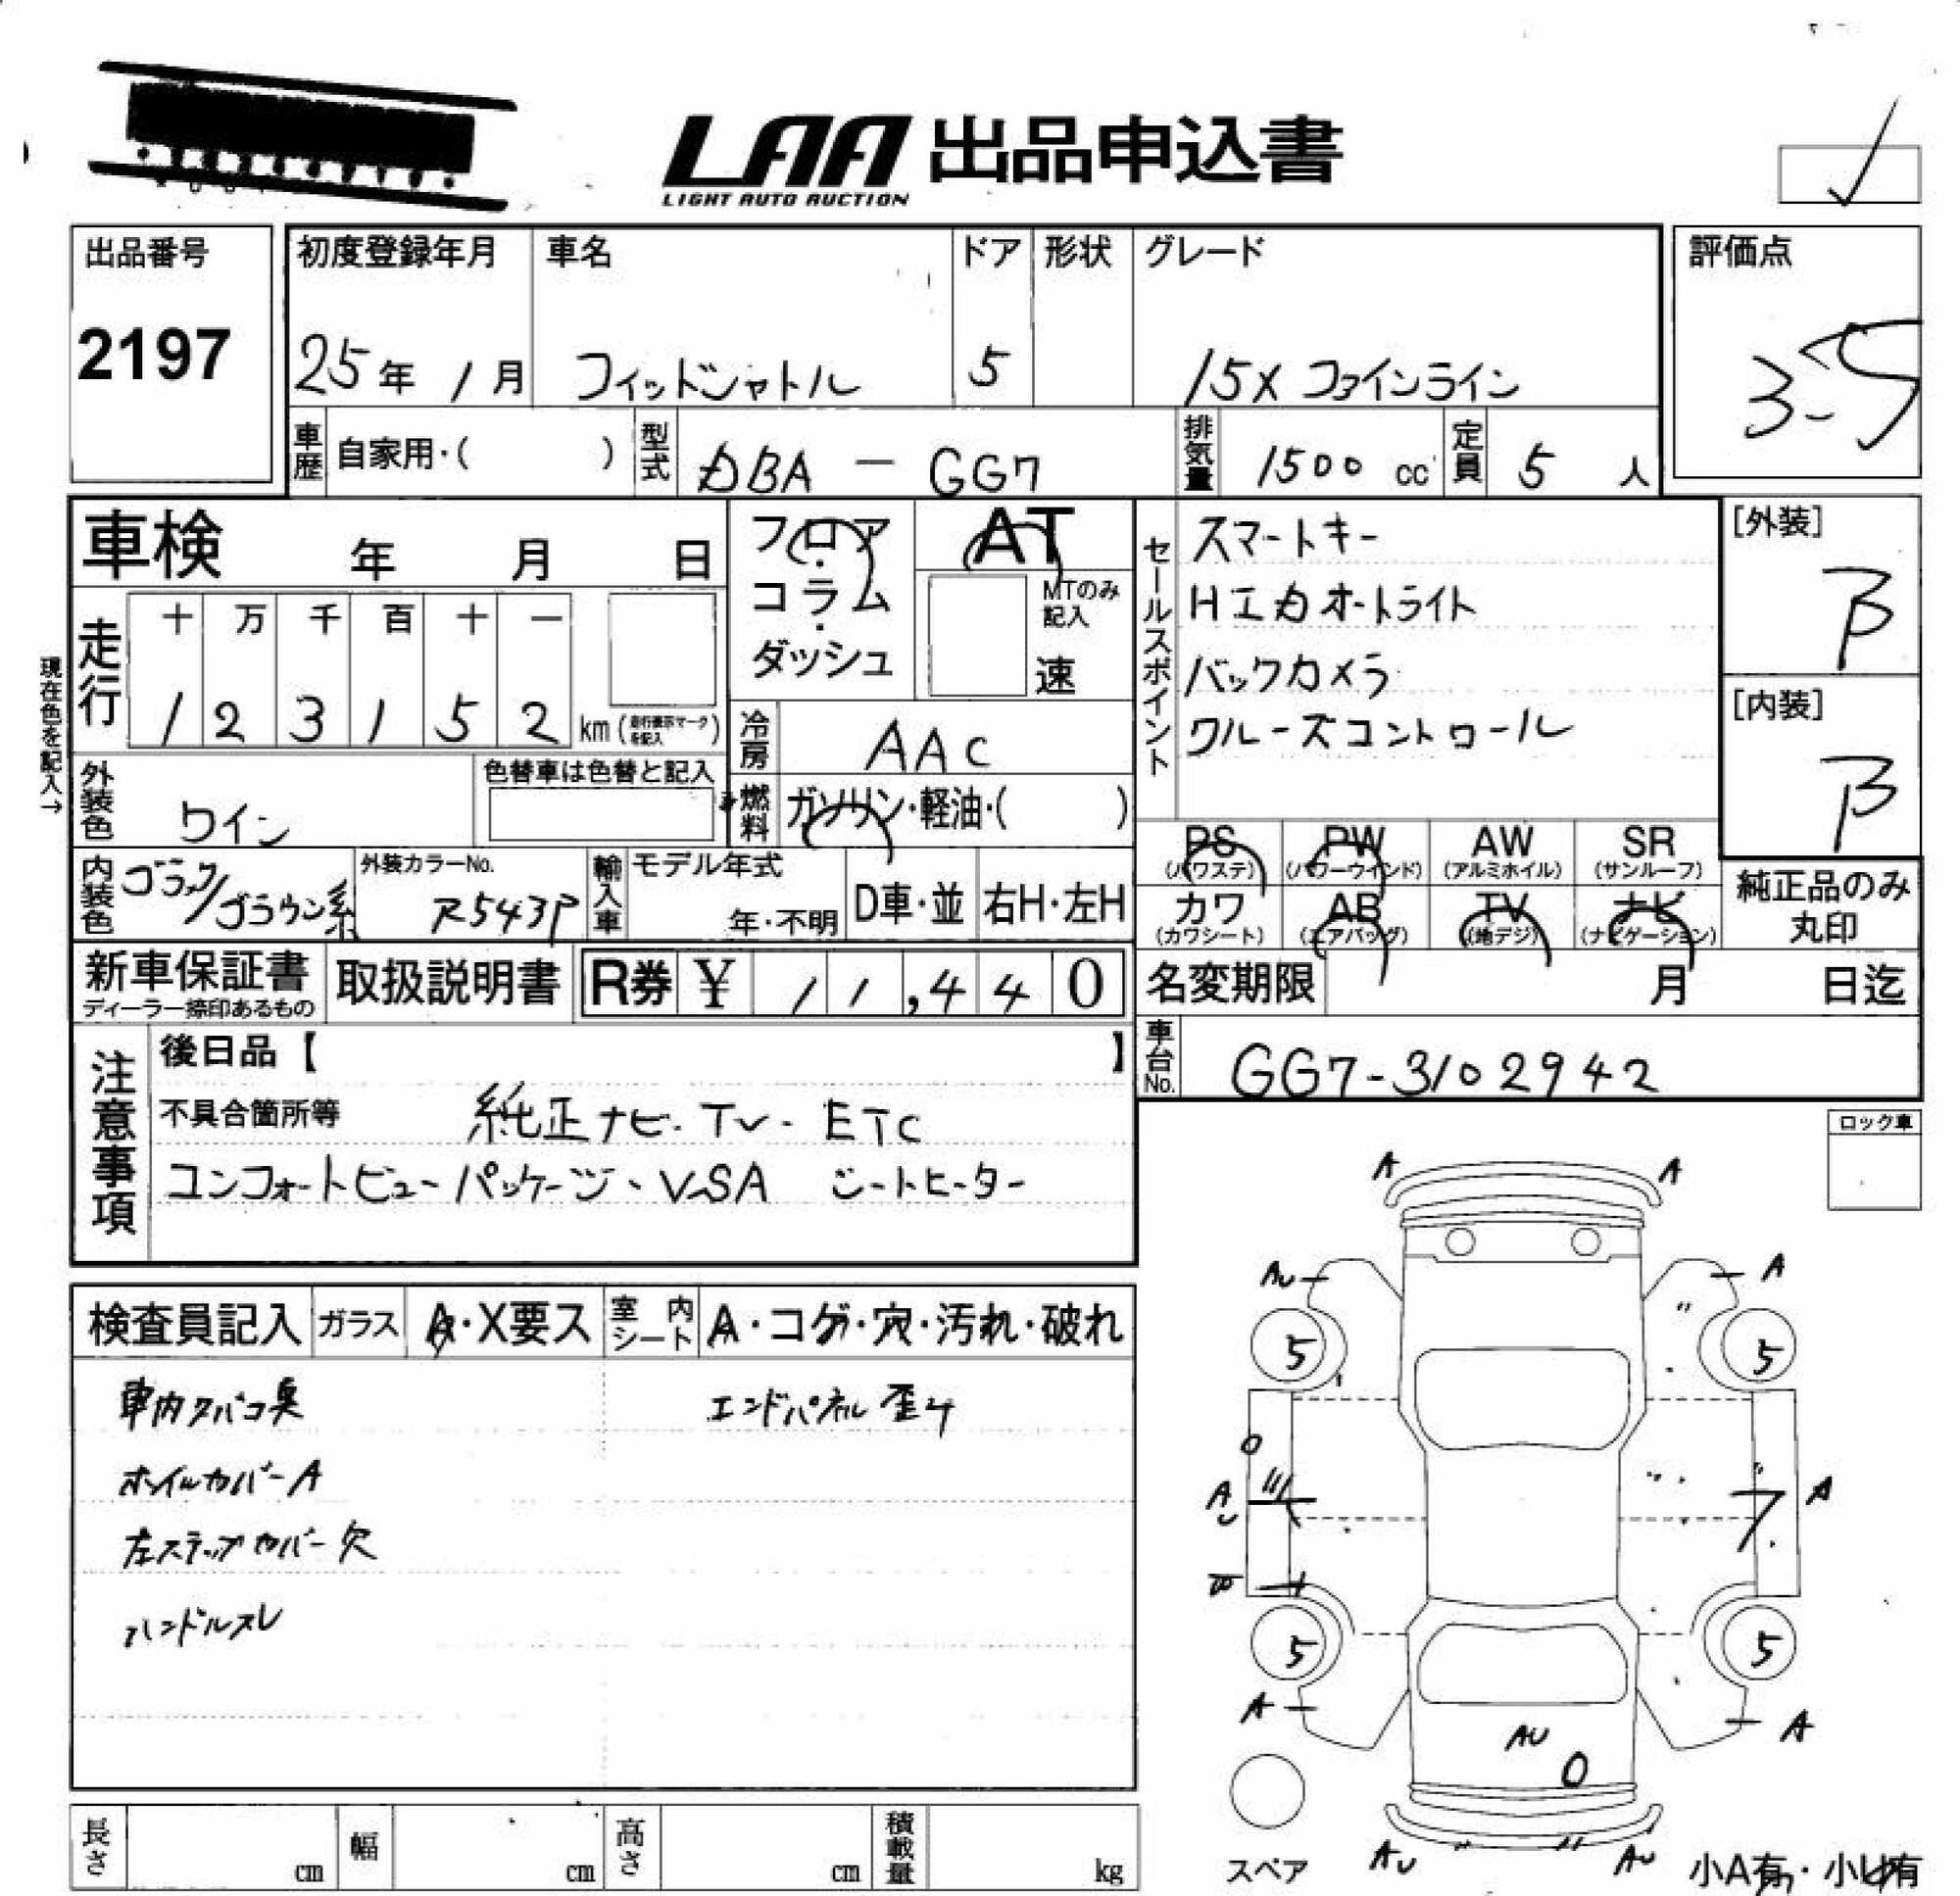 LAA 出品申込書
LIGHT AUTO AUCTION
出品番号
2197
初度登録年月
25年 1月
車名
フィッドシャトル
ドア
5
形状
グレード
15X ファインライン
評価点
3.5
車歴 自家用・( )
型式 DBA - GG7
排気量 1500 cc
定員 5 人
車検 年 月 日
フロア・コラム・ダッシュ
AT
MTのみ記入
速
セールスポイント
スマートキー
HIDオートライト
バックカメラ
クルーズコントロール
[外装]
B
[内装]
B
現在色を記入→
走行
十 万 千 百 十 一
1 2 3 1 5 2 km (走行表示マークを記入)
冷房 AAC
外装色 ワイン
色替車は色替と記入
燃料 ガソリン・軽油・( )
PS (パワステ)
PW (パワーウインド)
AW (アルミホイル)
SR (サンルーフ)
カワ (カワシート)
AB (エアバッグ)
TV (地デジ)
ナビ (ナビゲーション)
純正品のみ丸印
内装色 ブラック/ブラウン系
外装カラーNo.
R543P
輸入車
モデル年式
年・不明
D車・並
右H・左H
新車保証書
ディーラー捺印あるもの
取扱説明書
R券 ¥ 11,440
名変期限 月 日迄
車台No. GG7-3102942
注意事項
後日品【 】
不具合箇所等 純正ナビ・TV・ETC
コンフォートビューパッケージ・VSA シートヒーター
ロック車
検査員記入
ガラス A・X要ス
室内シート A・コゲ・穴・汚れ・破れ
車内タバコ臭
エンドパネル歪み
ホイルカバーA
左ステップカバー欠
ハンドルスレ
A A
AU A
5 5
A A
5 5
A A
AU
AU AU
スペア
小A有・小U有
長さ cm
幅 cm
高さ cm
積載量 kg